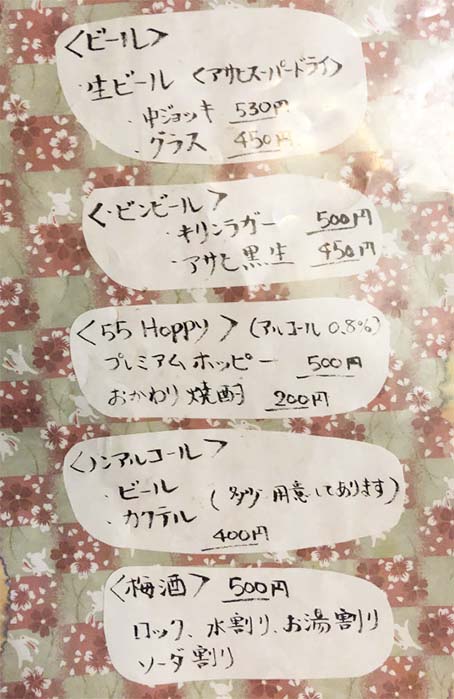 <ビール>
・生ビール <アサヒスーパードライ>
・中ジョッキ 530円
・グラス 450円
<・ビンビール>
・キリンラガー 500円
・アサヒ黒生 450円
<55 Hoppy> (アルコール 0.8%)
プレミアムホッピー 500円
おかわり焼酎 200円
<ノンアルコール>
・ビール
・カクテル (多少 用意してあります)
400円
<梅酒> 500円
ロック、水割り、お湯割り
ソーダ割り